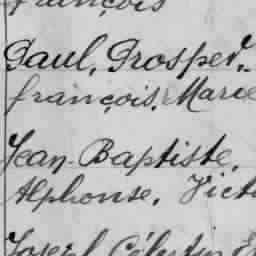 François
Paul, Prosper,
françois, Marie
Jean-Baptiste,
Alphonse, Vict
Joseph Célestin E